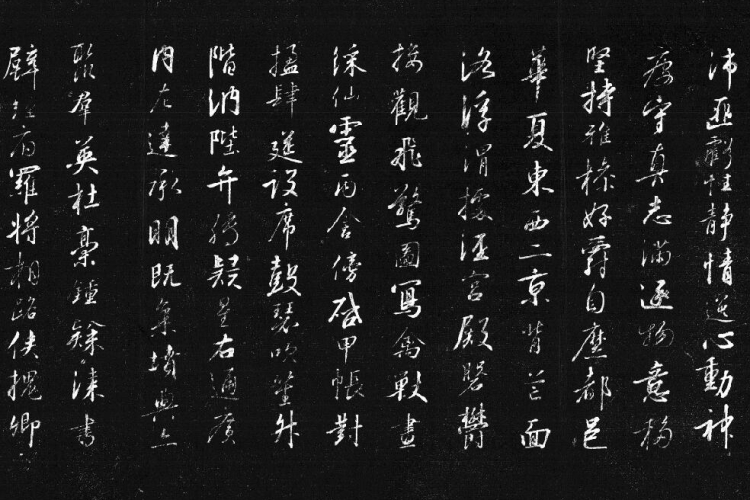 沛匪虧性靜情逸心動神
疲守真志滿逐物意移
堅持雅操好爵自縻都邑
華夏東西二京背芒面
洛浮渭據涇宮殿磐鬱
樓觀飛驚圖寫禽獸畫
綵仙靈丙舍傍啟甲帳對
楹肆筵設席鼓瑟吹笙升
階納陛弁轉疑星右通廣
內左達承明既集墳典亦
聚羣英杜稾鍾隸漆書
壁經府羅將相路俠槐卿